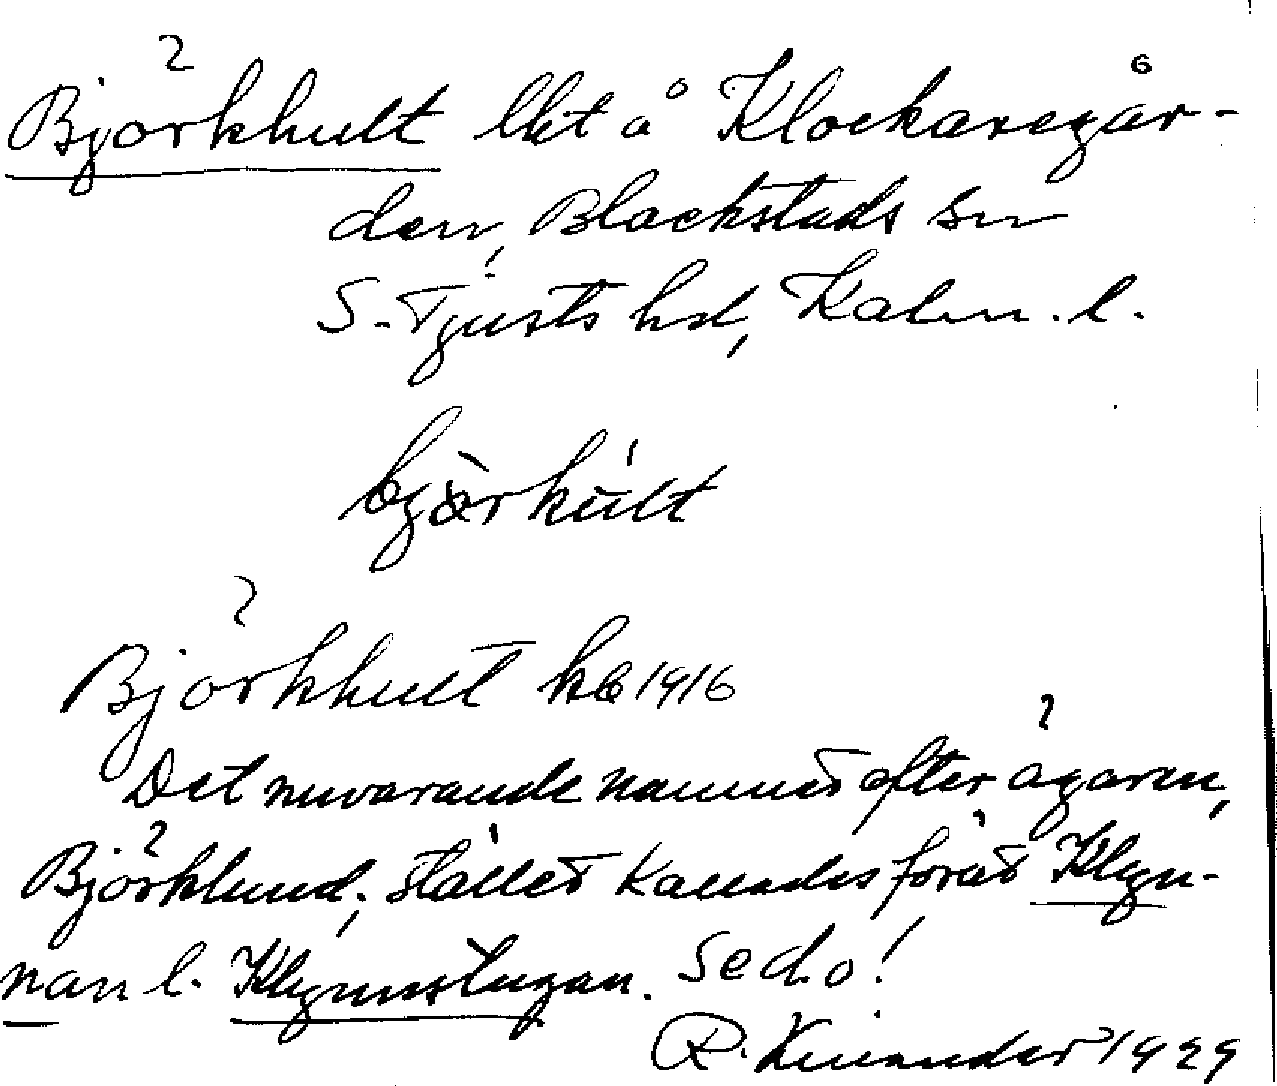 Björkhult lht å Klockaregår-
den, Blackstads sn
S. Tjusts hd, Kalm. l.
bjòrkúlt
Björkhult kb 1916
Det nuvarande namnet efter ägaren,
Björklund; stället kallades förät Klyn-
nan l. Klynnstugan. Se d.o!
R. Kinander 1929